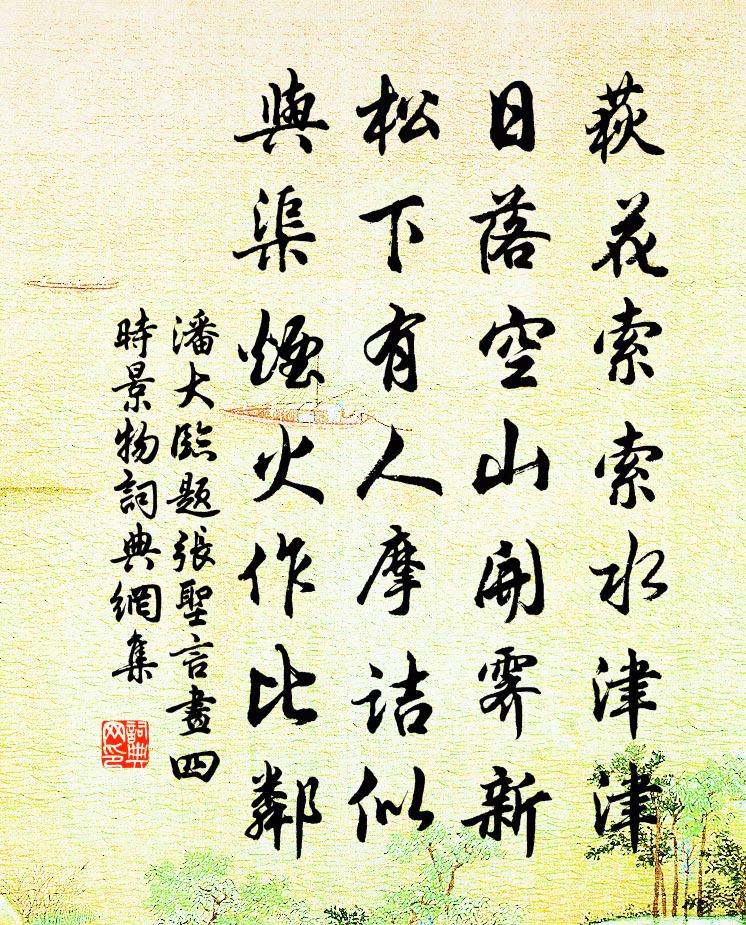 萩花索索水津津
日落空山開霽新
松下有人摩詰似
與渠煙火作比鄰
潘大臨題張聖言畫四
時景物詞典網集
詞典網印